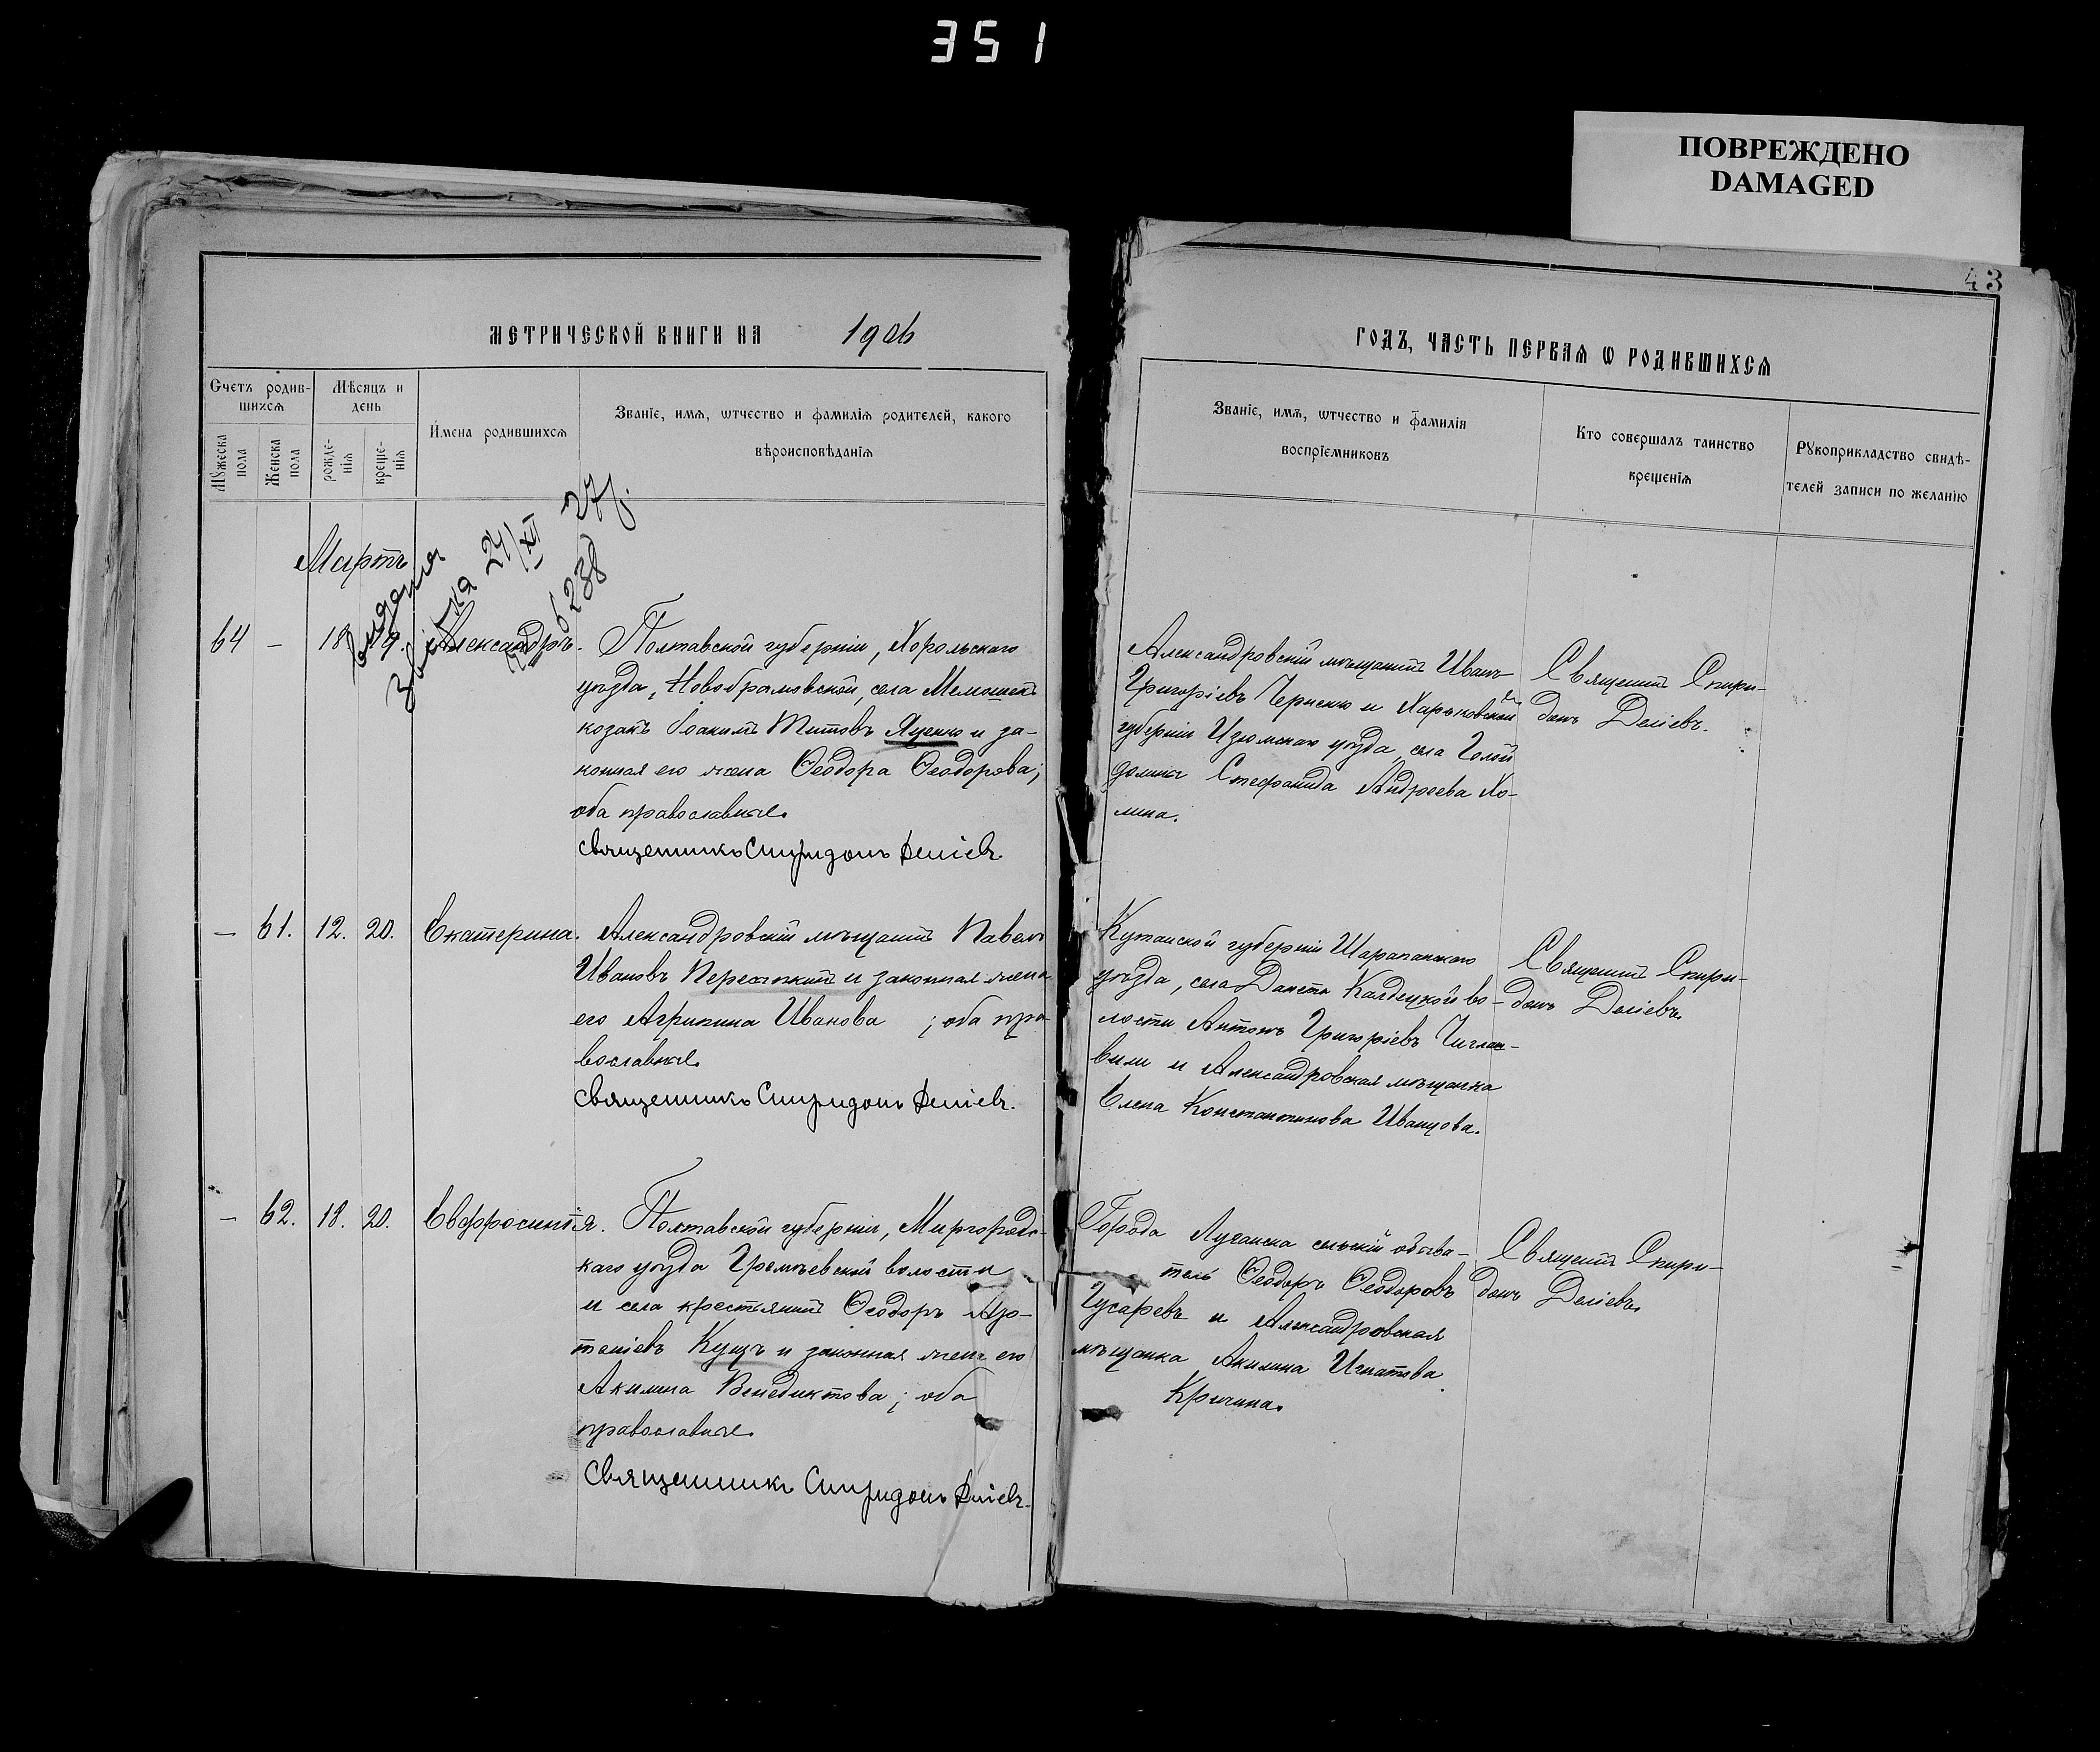 351
ПОВРЕЖДЕНО
DAMAGED
43
МЕТРИЧЕСКОЙ КНИГИ НА 1906
ГОДЪ, ЧАСТЬ ПЕРВАѦ Ѡ РОДИВШИХСѦ
Счетъ родив-
шихсѧ
Мѣсяцъ и
день
Мужеска
пола
Женска
пола
рожде-
нїѧ
креще-
нїѧ
Имена родившихсѧ
Званїе, имѧ, ѿтчество и фамилїѧ родителей, какого
вѣроисповѣданїѧ
Званїе, имѧ, ѿтчество и фамилїѧ
воспрїемниковъ
Кто совершалъ таинство
крещенїѧ
Рукоприкладство свидѣ-
телей записи по желанїю
Мартъ
24/XI 27 г.
6238
64 – 18 19. Александръ.
Полтавской губерніи, Хорольскаго
уѣзда, села
козакъ Іоакимъ Титовъ Яценко и за-
конная его жена Ѳеодора Ѳеодорова;
оба православные.
Священникъ Спиридонъ Деліевъ
Александровскій мѣщанинъ Иванъ
Григоріевъ Черненко и Харьковской
губерніи Изюмскаго уѣзда, села Голой
долины Стефанида Андреева Хо-
мина.
Священникъ Спири-
донъ Деліевъ.
– 61. 12. 20. Екатерина.
Александровскій мѣщанинъ Павелъ
Ивановъ и законная жена
его Агрипина Иванова ; оба пра-
вославные.
Священникъ Спиридонъ Деліевъ.
Кутаиской губерніи Шарапанскаго
уѣзда, села во-
лости Антонъ Григоріевъ
вили и Александровская мѣщанка
Елена Константинова Иванцова.
Священникъ Спири-
донъ Деліевъ.
– 62. 18. 20. Евфросинія.
Полтавской губерніи, Миргородс-
каго уѣзда волости
и села крестьянинъ Ѳеодоръ
Куцъ и законная жена его
Акилина Венедиктова; оба
православные.
Священникъ Спиридонъ Деліевъ.
Города Луганска сельскій обыва-
тель Ѳеодоръ Ѳеодоровъ
Гусаревъ и Александровская
мѣщанка Акилина Игнатова
Кричина.
Священникъ Спири-
донъ Деліевъ.